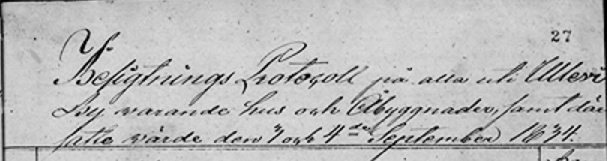 27
Besigtnings Protocoll på alla uti Ulleri
By varande hus och Åbyggnader, samt där
satte värde den 3 och 4de September 1834.